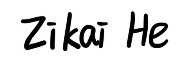 Zikai He